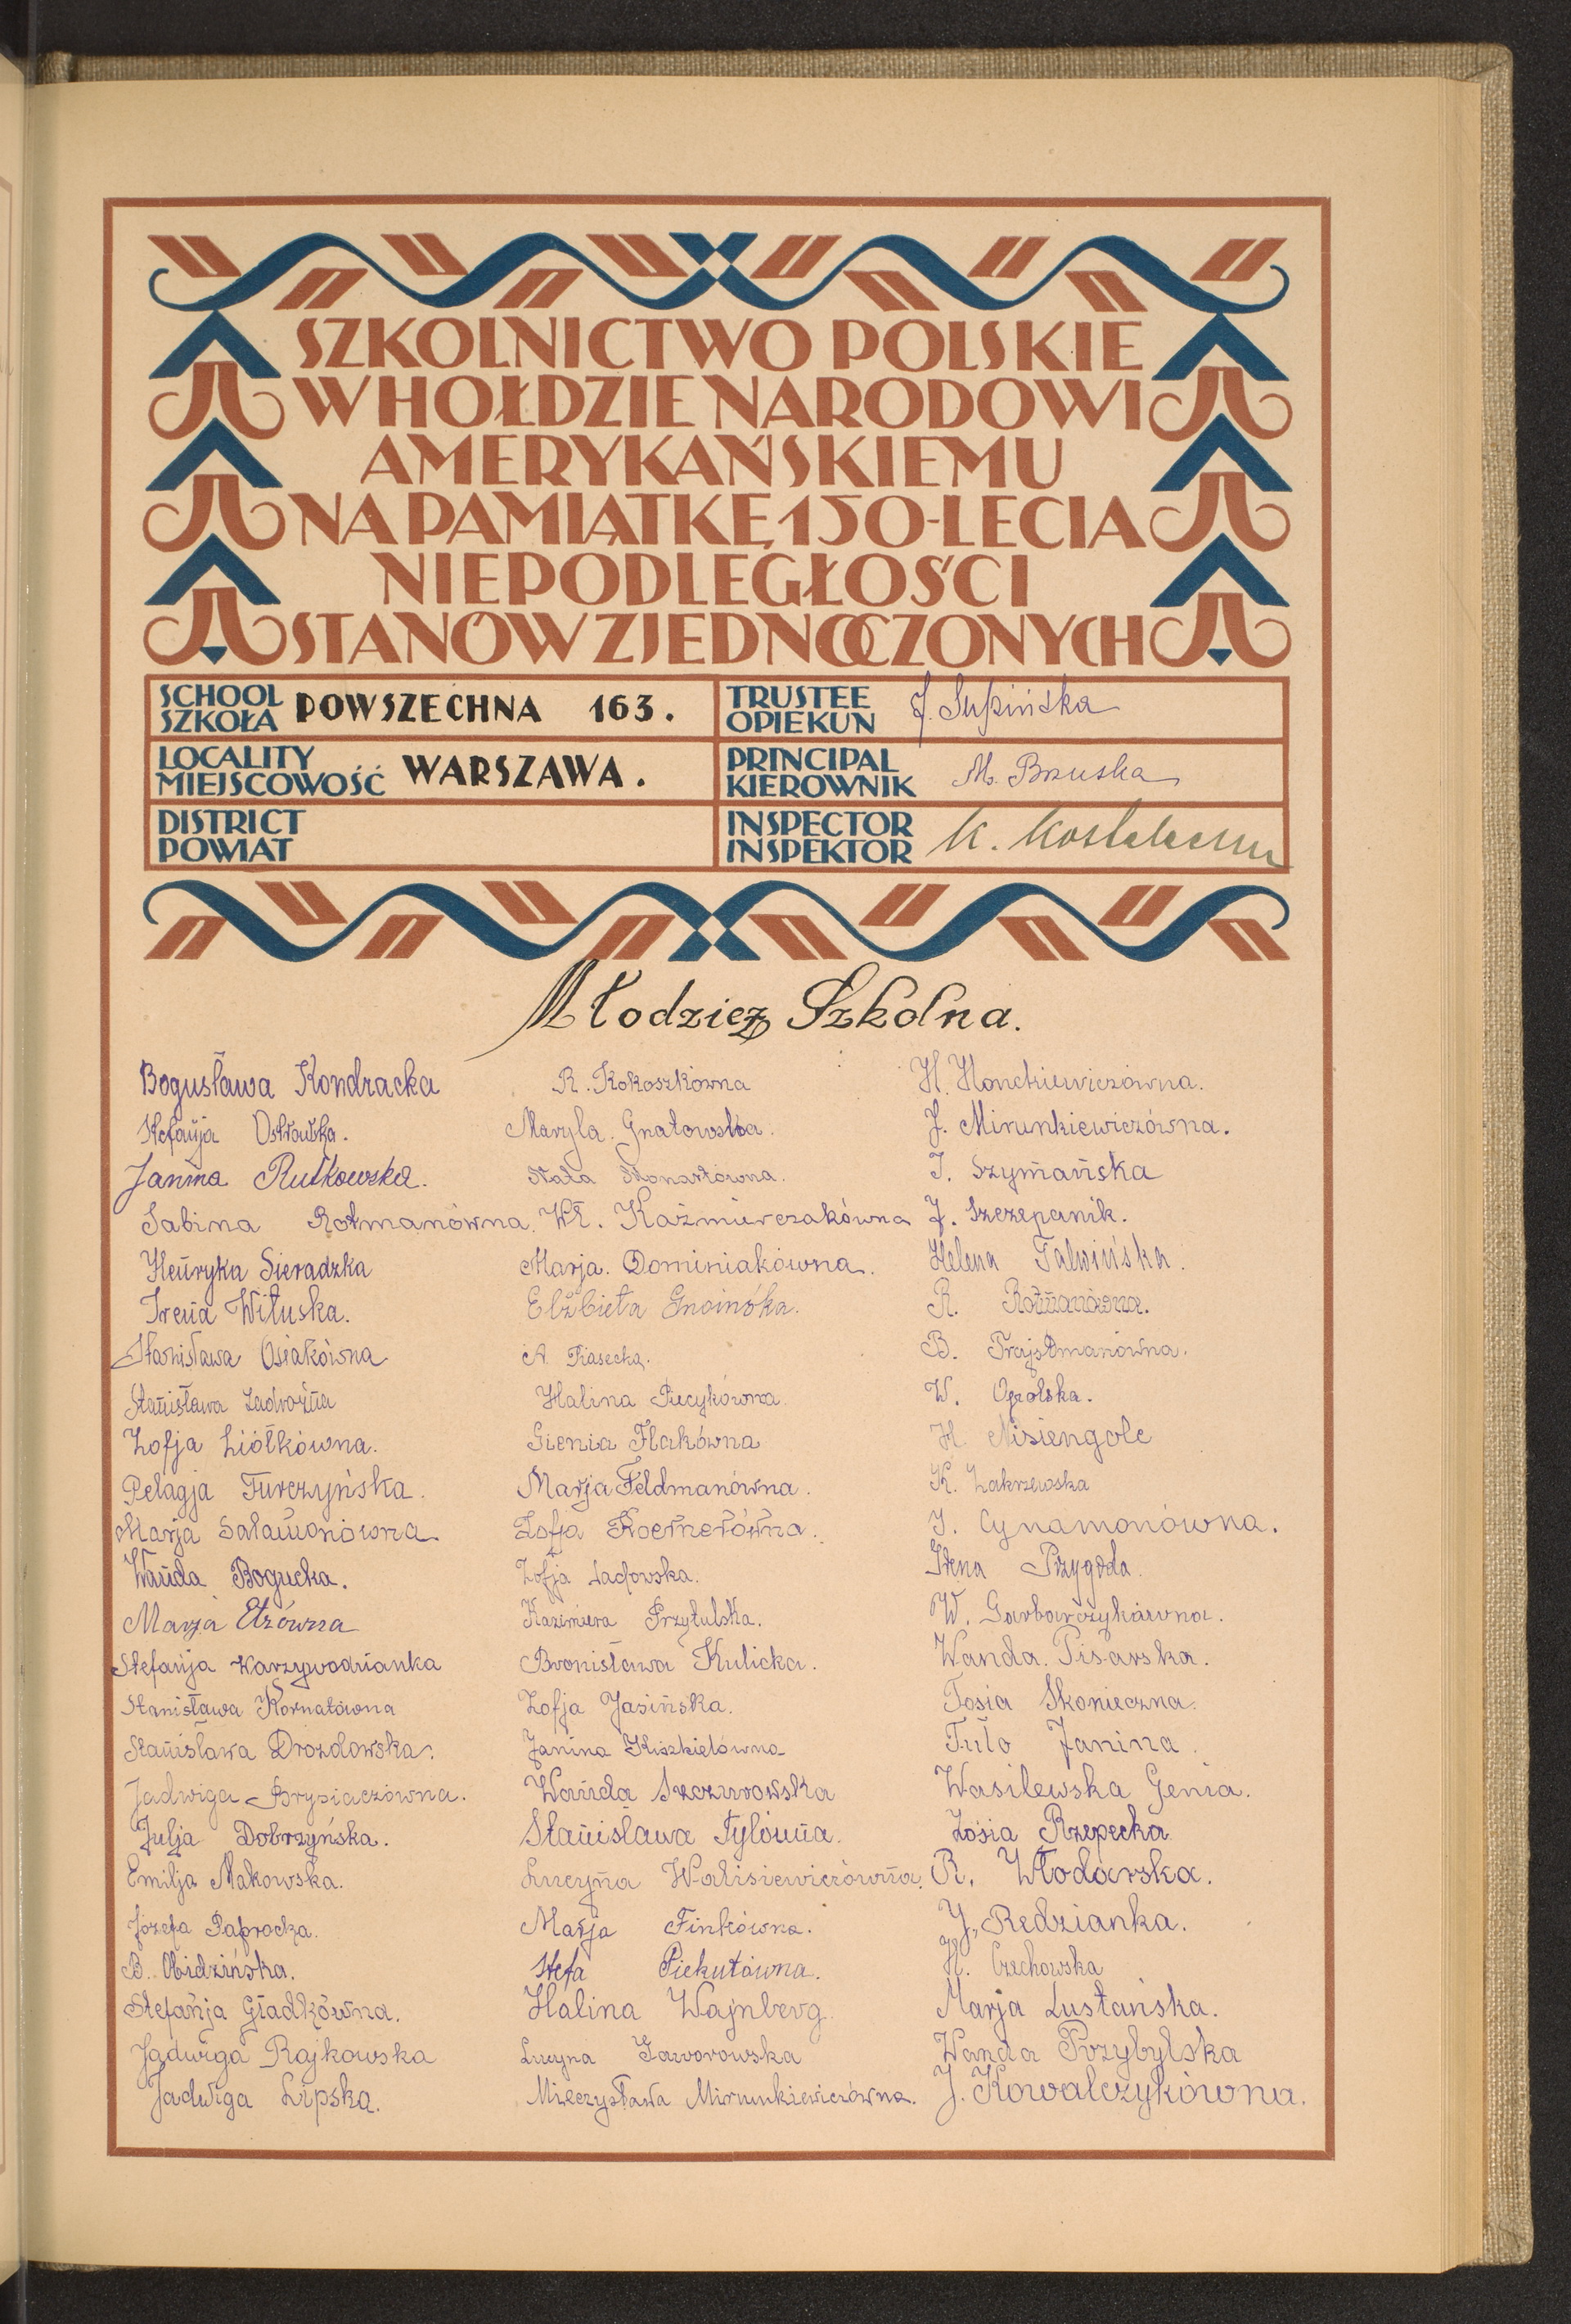 SZKOLNICTWO POLSKIE
W HOŁDZIE NARODOWI
AMERYKAŃSKIEMU
NA PAMIĄTKĘ 150-LECIA
NIEPODLEGŁOŚCI
STANÓW ZJEDNOCZONYCH
SCHOOL
SZKOŁA POWSZECHNA 163.
TRUSTEE
OPIEKUN J. Supińska
LOCALITY
MIEJSCOWOŚĆ WARSZAWA.
PRINCIPAL
KIEROWNIK M. Bruska
DISTRICT
POWIAT
INSPECTOR
INSPEKTOR K.
Młodzież Szkolna.
Bogusława Kondracka
Stefanja Ostrowska.
Janina Rutkowska.
Sabina Rotmanówna
Henryka Sieradzka
Irena Wituska.
Stanisława Osiakówna
Stanisława Zadrożna
Zofja Ziółkówna.
Pelagja Turczyńska.
Marja Sałamonówna
Wanda Bogucka.
Marja
Stefanja Karzywodnianka
Stanisława Kornatówna
Stanisława Drozdowska.
Jadwiga Brysiaczówna.
Julja Dobrzyńska.
Emilja Makowska.
Józefa Paprocka.
B. Obidzińska.
Stefanja Gładkówna.
Jadwiga Rajkowska
Jadwiga Lipska.
R. Kokoszkówna
Maryla. Gnatowska.
Nata
Wł. Kaźmierczakówna
Marja. Dominiakówna.
Elżbieta Gnoińska.
A. Piasecka.
Halina Piecykówna
Gienia Flakówna
Marja Feldmanówna.
Zofja Koernerówna.
Zofja Sadowska.
Kazimiera Przytulska.
Bronisława Kulicka.
Zofja Jasińska.
Janina Kiszkielówna
Wanda Szczurowska
Stanisława Tylówna.
Lucyna Walisiewiczówna.
Marja Finkówna.
Stefa Piekutówna.
Halina Wajnberg
Lucyna Jaworowska
Mieczysława Mirunkiewiczówna.
H. Honckiewiczówna.
J. Mirunkiewiczówna.
I. Szymańska
J. Szczepanik.
Helena Talwińska.
R. Rotmanówna.
B. Trajstmanówna.
W. Opolska.
H. Nisiengolc
K. Zakrzewska
J. Cynamonówna.
Irena Przygoda.
W. Garbarczykówna.
Wanda. Pisarska.
Tosia Skonieczna.
Tuło Janina.
Wasilewska Genia.
Zosia Rzepecka
R. Włodarska.
J. Redzianka.
H. Czechowska
Marja Lustańska.
Wanda Przybylska
J. Kowalczykówna.